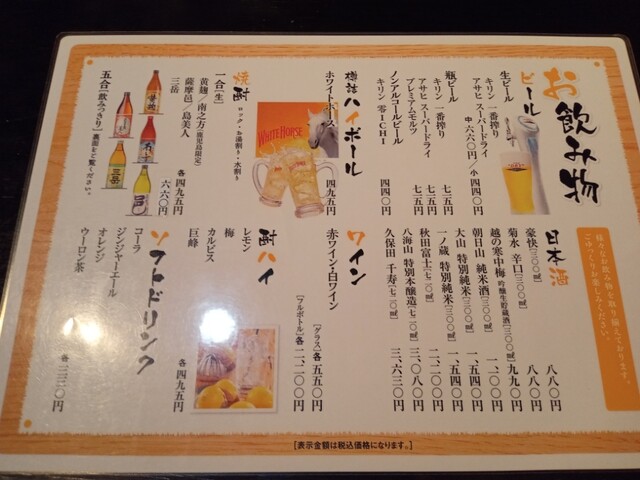 お飲み物
ビール
生ビール
キリン 一番搾り
アサヒ スーパードライ
中 六六〇円/小 四四〇円
瓶ビール
キリン 一番搾り 七一五円
アサヒ スーパードライ 七一五円
プレミアムモルツ 七一五円
ノンアルコールビール
キリン 零ICHI 四四〇円
樽詰ハイボール
ホワイトホース 四九五円
WHITE HORSE
焼酎
ロック・お湯割り・水割り
一合[生]
黄麹/南之方(鹿児島限定)
薩摩邑/島美人 各 四九五円
三岳 六六〇円
五合[飲みつきり]裏面をご覧ください。
様々なお飲み物を取り揃えております
ごゆっくりお楽しみください。
日本酒
豪快[三〇〇㎖] 八八〇円
菊水 辛口[三〇〇㎖] 八八〇円
越の寒中梅 吟醸生貯蔵酒[三〇〇㎖] 九九〇円
朝日山 純米酒[三〇〇㎖] 一、一〇〇円
大山 特別純米[三〇〇㎖] 一、五四〇円
一ノ蔵 特別純米[三〇〇㎖] 一、五四〇円
秋田富士[七二〇㎖] 二、二〇〇円
八海山 特別本醸造[七二〇㎖] 三、〇八〇円
久保田 千寿[七二〇㎖] 三、六三〇円
ワイン
赤ワイン・白ワイン
[グラス]各 五五〇円
[フルボトル]各 二、二〇〇円
酎ハイ
レモン
梅
カルピス
巨峰
各 四九五円
ソフトドリンク
コーラ
ジンジャーエール
オレンジ
ウーロン茶
各 三三〇円
[表示金額は税込価格になります。]